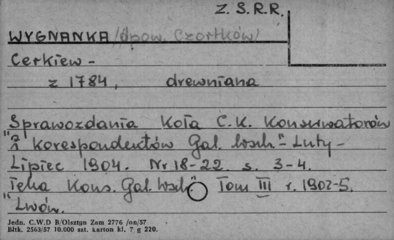 Z. S. R. R.
WYGNANKA /pow. Czortków/
Cerkiew -
z 1784, drewniana
Sprawozdania Koła C.K. Konserwatorów
"i korespondentów Gal. wsch." Luty-
Lipiec 1904. Nr 18-22. s. 3-4.
Teka Kons. Gal. wsch. Tom III r. 1902-5.
"Lwów.
Jedn. C.W.D B/Olsztyn Zam 2776 /on/57
Bltk. 2563/57 10.000 szt. karton kl. 7 g 220.